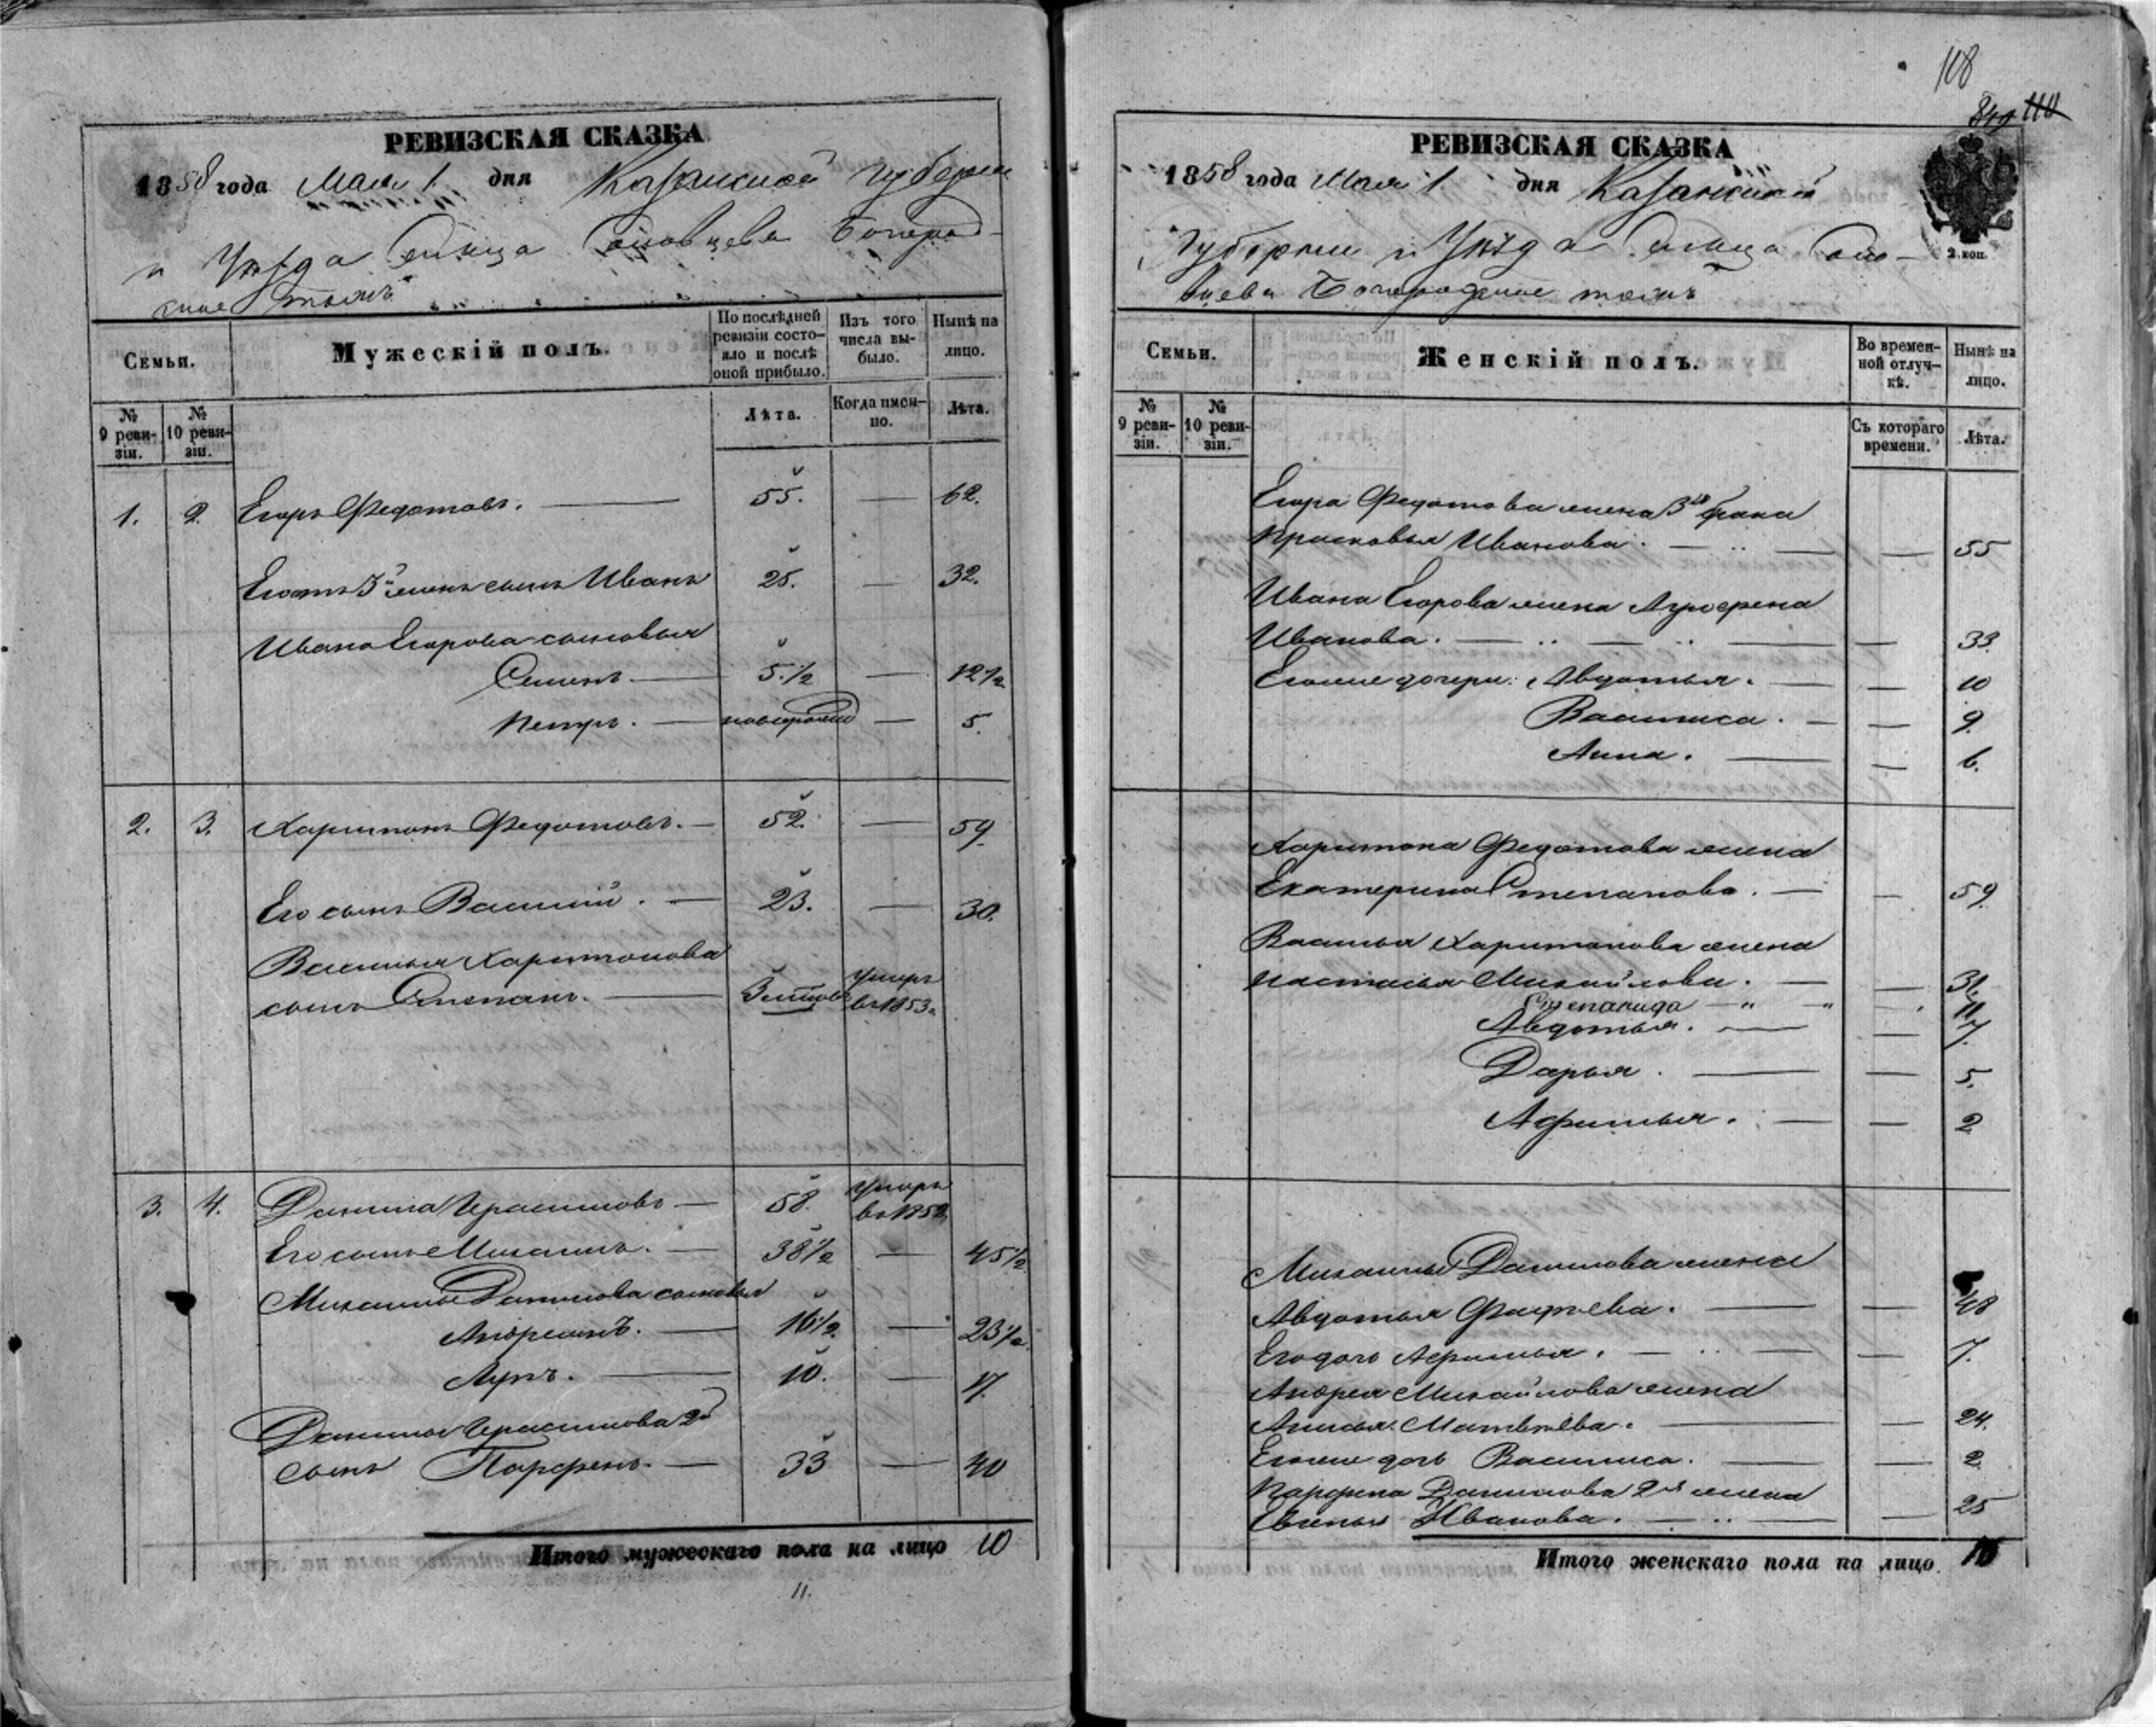 РЕВИЗСКАЯ СКАЗКА
1858 года Мая 1. дня Казанской Губернии
и Уѣзда Сельца Соловцева Богород-
ское тожъ
Семьи.
Мужескій полъ.
По послѣдней ревизіи состо-яло и послѣ оной прибыло.
Изъ того числа вы-было.
Нынѣ на лицо.
№ 9 реви-зіи.
№ 10 реви-зіи.
Лѣта.
Когда имен-но.
Лѣта.
1. 2. Егоръ Федотовъ. — 55. — 62.
Егоръ 3й жены сынъ Иванъ 25. — 32.
Ивана Егорова сыновья
Семенъ — 5 1/2 — 12 1/2
Петръ. — новорожден — 5.
2. 3. Харитонъ Федотовъ. — 52. — 59.
Его сынъ Василій. — 23. — 30.
Василья Харитонова
сынъ Степанъ. — умеръ
въ 1853.
3. 4. Данила Герасимовъ — 58. умеръ
въ 1852
Его сынъ Михаила. — 38 1/2 — 45 1/2
Михайлы Данилова сыновья
Андреянъ. — 16 1/2 — 23 1/2
Лупъ. — 10. — 17.
Данилы Герасимова 2й
сынъ Парфенъ. — 33 — 40
Итого мужескаго пола на лицо 10
11.
108
110
РЕВИЗСКАЯ СКАЗКА
1858 года Мая 1. дня Казанской
Губернии и Уѣзда Сельца Соло-
вцева Богородское тожъ
2. коп.
Семьи.
Женскій полъ.
Во времен-ной отлуч-кѣ.
Нынѣ на лицо.
№ 9 реви-зіи.
№ 10 реви-зіи.
Съ котораго времени.
Лѣта.
Егора Федотова жена 3го брака
Прасковья Иванова. — — 55
Ивана Егорова жена Агрофена
Иванова. — — 33.
Егоже дочери: Авдотья. — — 10
Василиса. — — 9.
Анна. — — 6.
Харитона Федотова жена
Екатерина Степанова. — — 59.
Василья Харитонова жена
Настасья Михайлова. — — 31.
Степанида — " " — 11.
Авдотья. — — 7.
Дарья. — — 5.
Афимья. — — 2
Михайлы Данилова жена
Авдотья Фадѣева. — — 48
Его дочь Афимья. — — 7.
Андрея Михайлова жена
Анисья Матвѣева. — — 24.
Егоже дочь Василиса. — — 2
Парфена Данилова 2я жена
Евгенья Иванова. — — 25
Итого женскаго пола на лицо.